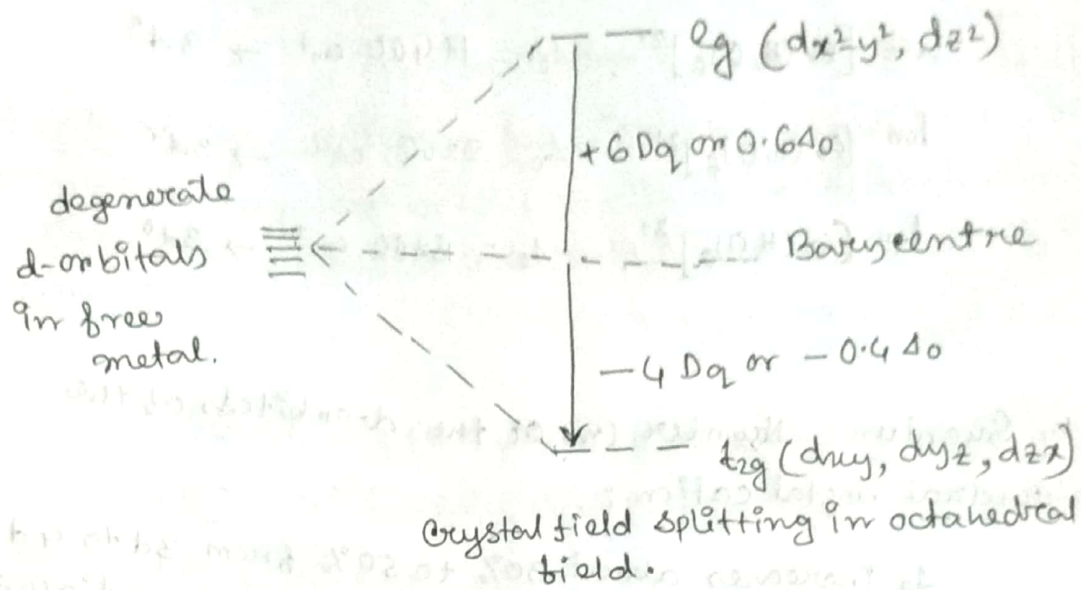 eg (dx²-y², dz²)
+6 Dq or 0.6Δo
degenerate
d-orbitals
in free
metal.
Barycentre
-4 Dq or -0.4 Δo
t2g (dxy, dyz, dzx)
Crystal field splitting in octahedral
field.